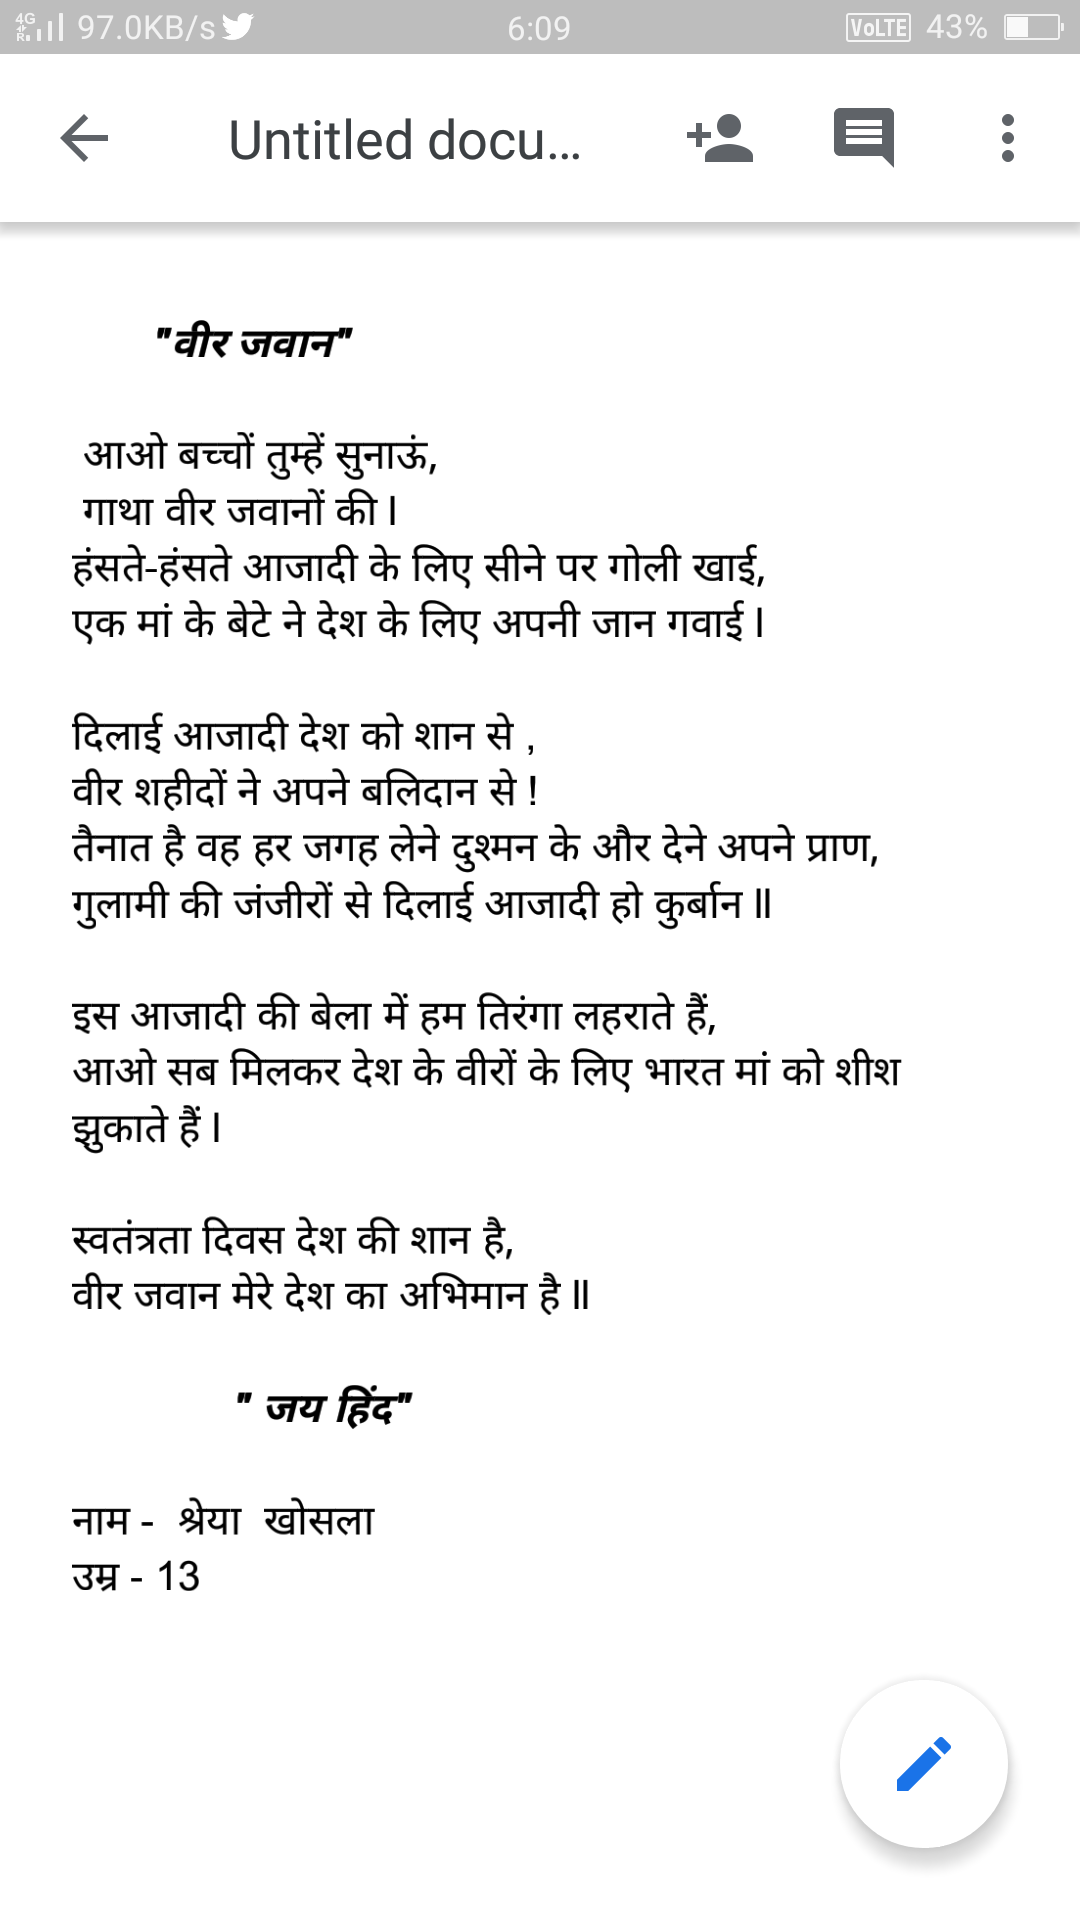 4G 97.0KB/s 6:09 VoLTE 43%
R
Untitled docu...
"वीर जवान"
आओ बच्चों तुम्हें सुनाऊं,
गाथा वीर जवानों की l
हंसते-हंसते आजादी के लिए सीने पर गोली खाई,
एक मां के बेटे ने देश के लिए अपनी जान गवाई l
दिलाई आजादी देश को शान से ,
वीर शहीदों ने अपने बलिदान से !
तैनात है वह हर जगह लेने दुश्मन के और देने अपने प्राण,
गुलामी की जंजीरों से दिलाई आजादी हो कुर्बान ll
इस आजादी की बेला में हम तिरंगा लहराते हैं,
आओ सब मिलकर देश के वीरों के लिए भारत मां को शीश
झुकाते हैं l
स्वतंत्रता दिवस देश की शान है,
वीर जवान मेरे देश का अभिमान है ll
" जय हिंद"
नाम - श्रेया खोसला
उम्र - 13